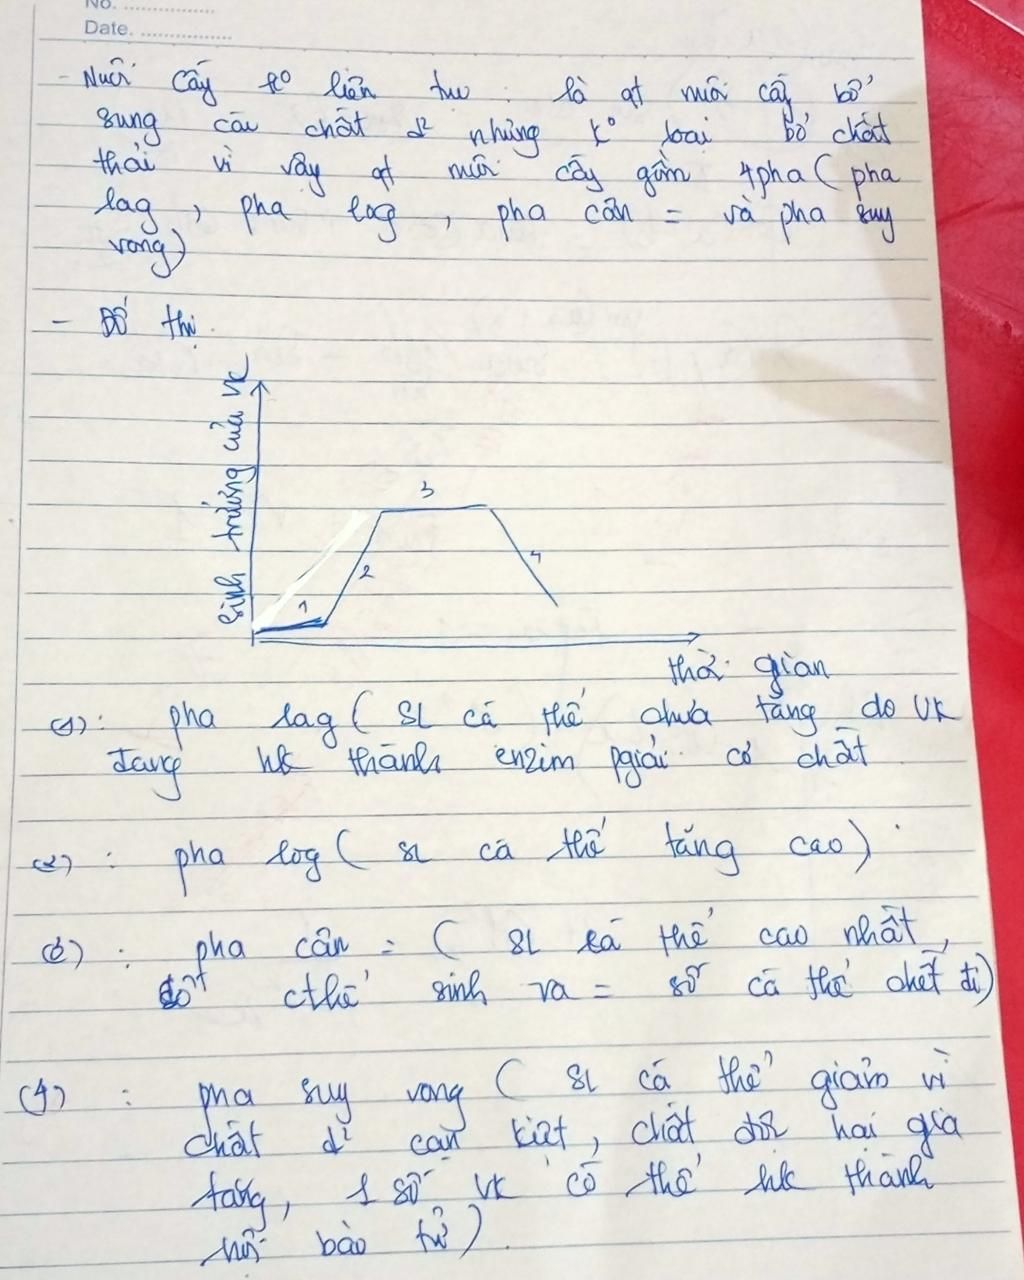 No. ................
Date. ................
- Nuôi Cấy k° liên tục : là qt nuôi cấy bổ
sung các chất d² nhưng k° loại bỏ chất
thải vì vậy qt nuôi cấy gồm 4 pha ( pha
lag , pha log , pha cân = và pha suy
vong)
- Đồ thị.
Sinh trưởng của VK
3
2
4
1
thời gian
(1): pha lag ( SL cá thể chưa tăng do VK
đang hk thành enzim pgiải cơ chất
(2) : pha log ( SL cá thể tăng cao) .
(3) : pha cân = ( SL cá thể cao nhất,
số cthể sinh ra = số cá thể chết đi)
(4) : pha suy vong ( SL cá thể giảm vì
chất d² cạn kiệt, chất độc hại gia
tăng, 1 số VK có thể hk thành
nội bào tử ) .